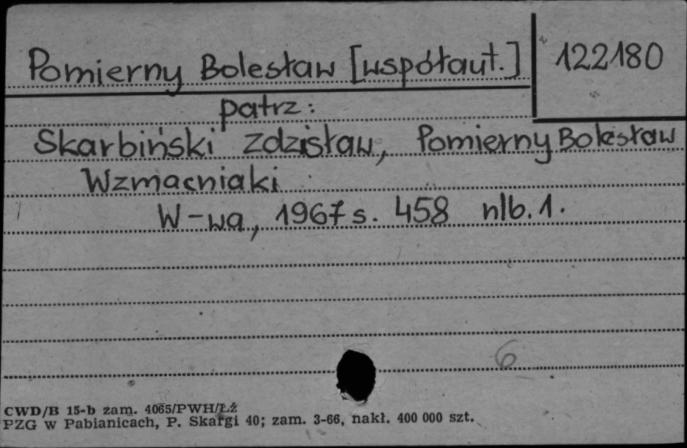 Pomierny Bolesław [współaut.] 122180
patrz:
Skarbiński Zdzisław, Pomierny Bolesław
Wzmacniaki
W-wa, 1967 s. 458 nlb. 1.
6
CWD/B 15-b zam. 4065/PWH/Łż
PZG w Pabianicach, P. Skargi 40; zam. 3-66, nakł. 400 000 szt.